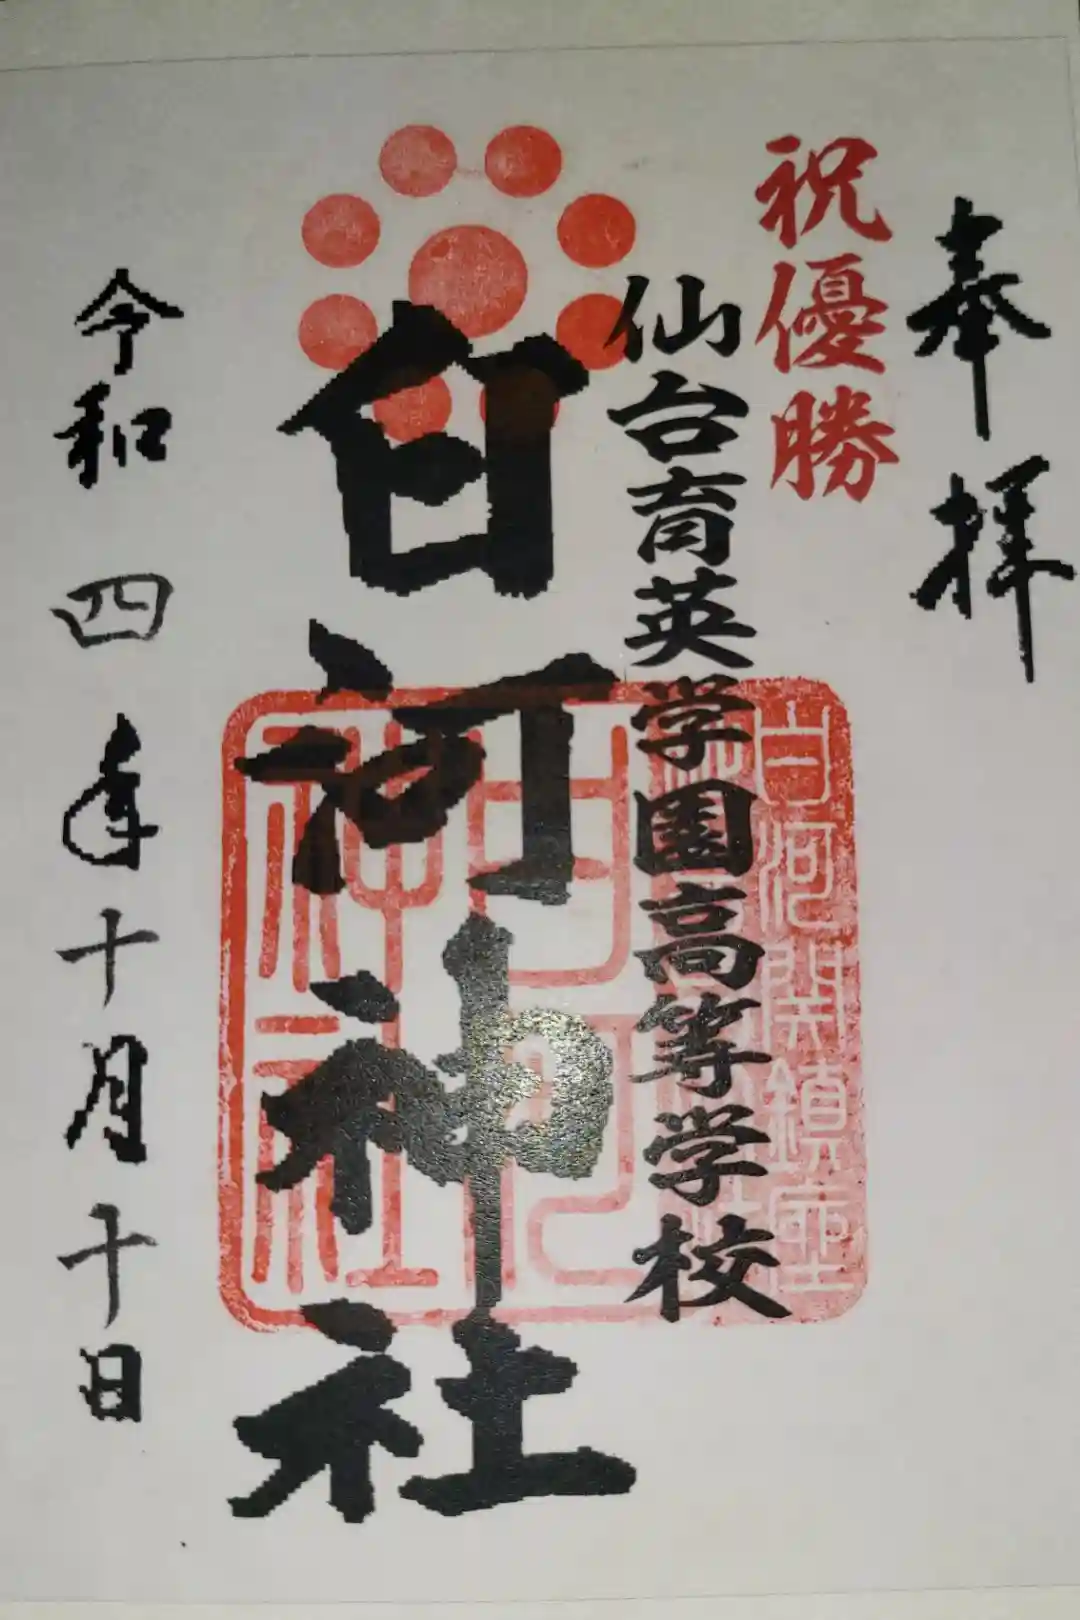 奉拝
祝優勝
仙台育英学園高等学校
白河関鎮座
白河神社
令和四年十月十日